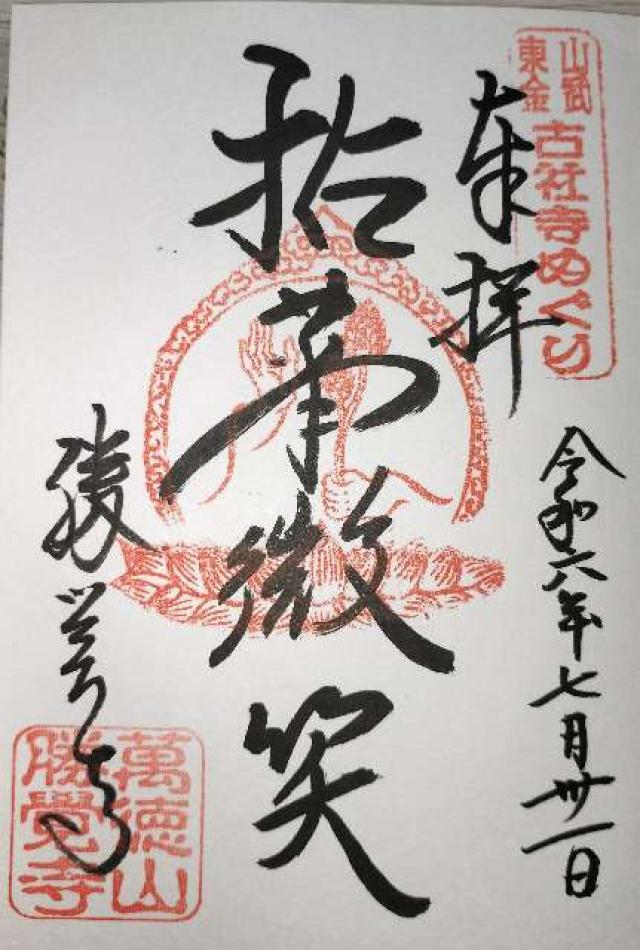 山武
東金
古社寺めぐり
奉拝
令和六年七月卅一日
拈華微笑
勝覚寺
萬徳山
勝覺寺